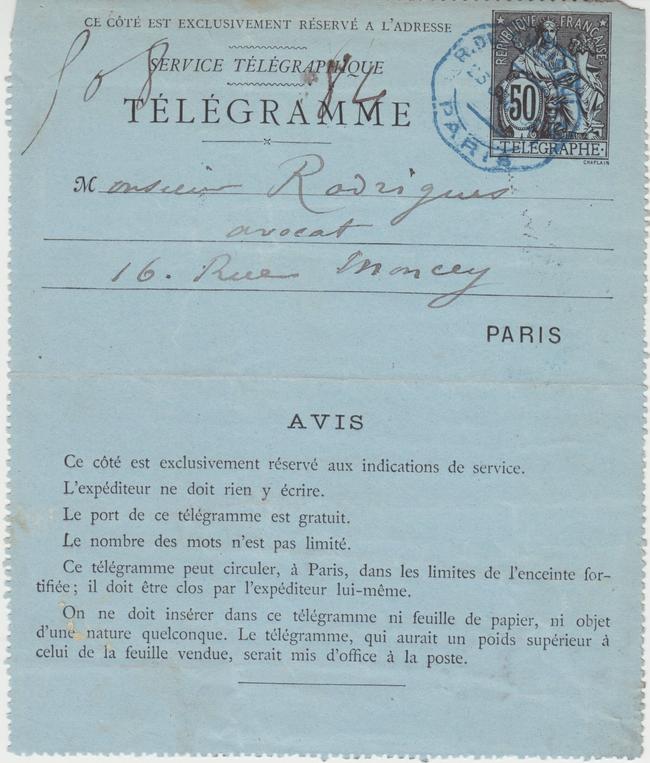 CE CÔTÉ EST EXCLUSIVEMENT RÉSERVÉ A L'ADRESSE
SERVICE TÉLÉGRAPHIQUE
TÉLÉGRAMME
RÉPUBLIQUE FRANÇAISE
50
TÉLÉGRAPHE
CHAPLAIN
R. D
PARIS
508
Monsieur Rodrigues
avocat
16. Rue Moncey
PARIS
AVIS
Ce côté est exclusivement réservé aux indications de service.
L'expéditeur ne doit rien y écrire.
Le port de ce télégramme est gratuit.
Le nombre des mots n'est pas limité.
Ce télégramme peut circuler, à Paris, dans les limites de l'enceinte for-
tifiée; il doit être clos par l'expéditeur lui-même.
On ne doit insérer dans ce télégramme ni feuille de papier, ni objet
d'une nature quelconque. Le télégramme, qui aurait un poids supérieur à
celui de la feuille vendue, serait mis d'office à la poste.